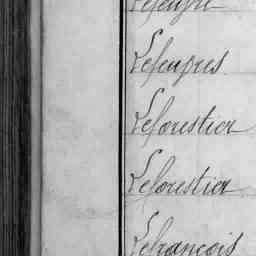 Lefeupres
Leforestier
Leforestier
Lefrançois